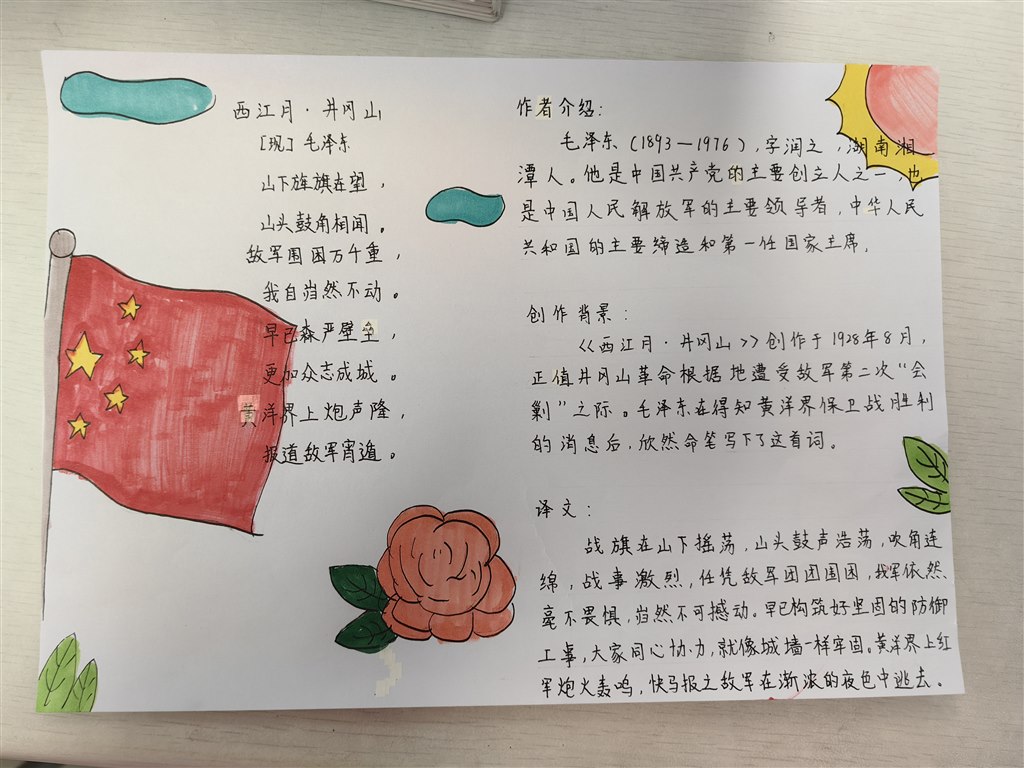 西江月·井冈山
[现] 毛泽东
山下旌旗在望，
山头鼓角相闻。
敌军围困万千重，
我自岿然不动。
早已森严壁垒，
更加众志成城。
黄洋界上炮声隆，
报道敌军宵遁。
作者介绍：
毛泽东（1893—1976），字润之，湖南湘
潭人。他是中国共产党的主要创立人之一，也
是中国人民解放军的主要领导者，中华人民
共和国的主要缔造和第一任国家主席。
创作背景：
《西江月·井冈山》创作于1928年8月，
正值井冈山革命根据地遭受敌军第二次“会
剿”之际。毛泽东在得知黄洋界保卫战胜利
的消息后，欣然命笔写下了这首词。
译文：
战旗在山下摇荡，山头鼓声浩荡，吹角连
绵，战事激烈，任凭敌军团团围困，我军依然
毫不畏惧，岿然不可撼动。早已构筑好坚固的防御
工事，大家同心协力，就像城墙一样牢固。黄洋界上红
军炮火轰鸣，快马报之敌军在渐浓的夜色中逃去。